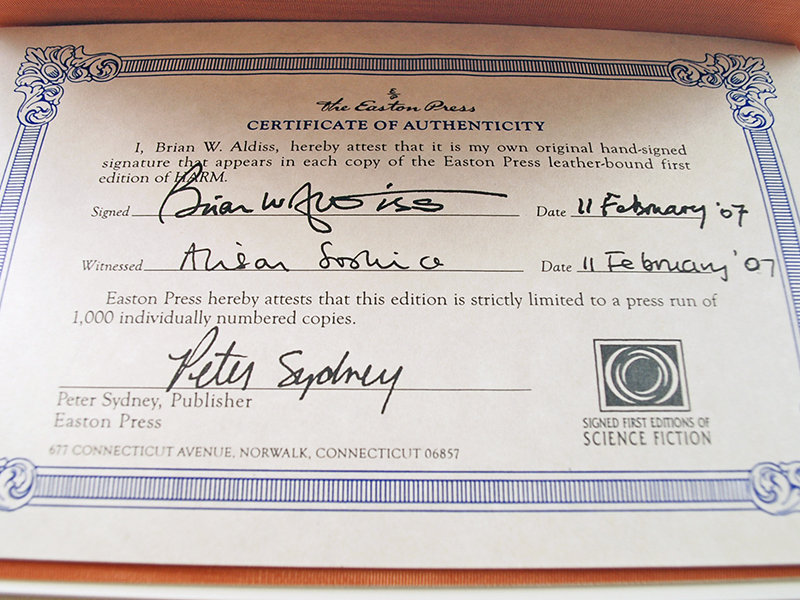 The Easton Press
CERTIFICATE OF AUTHENTICITY
I, Brian W. Aldiss, hereby attest that it is my own original hand-signed
signature that appears in each copy of the Easton Press leather-bound first
edition of HARM.
Signed Brian W Aldiss Date 11 February '07
Witnessed Alison Date 11 February '07
Easton Press hereby attests that this edition is strictly limited to a press run of
1,000 individually numbered copies.
Peter Sydney
Peter Sydney, Publisher
Easton Press
677 CONNECTICUT AVENUE, NORWALK, CONNECTICUT 06857
SIGNED FIRST EDITIONS OF
SCIENCE FICTION